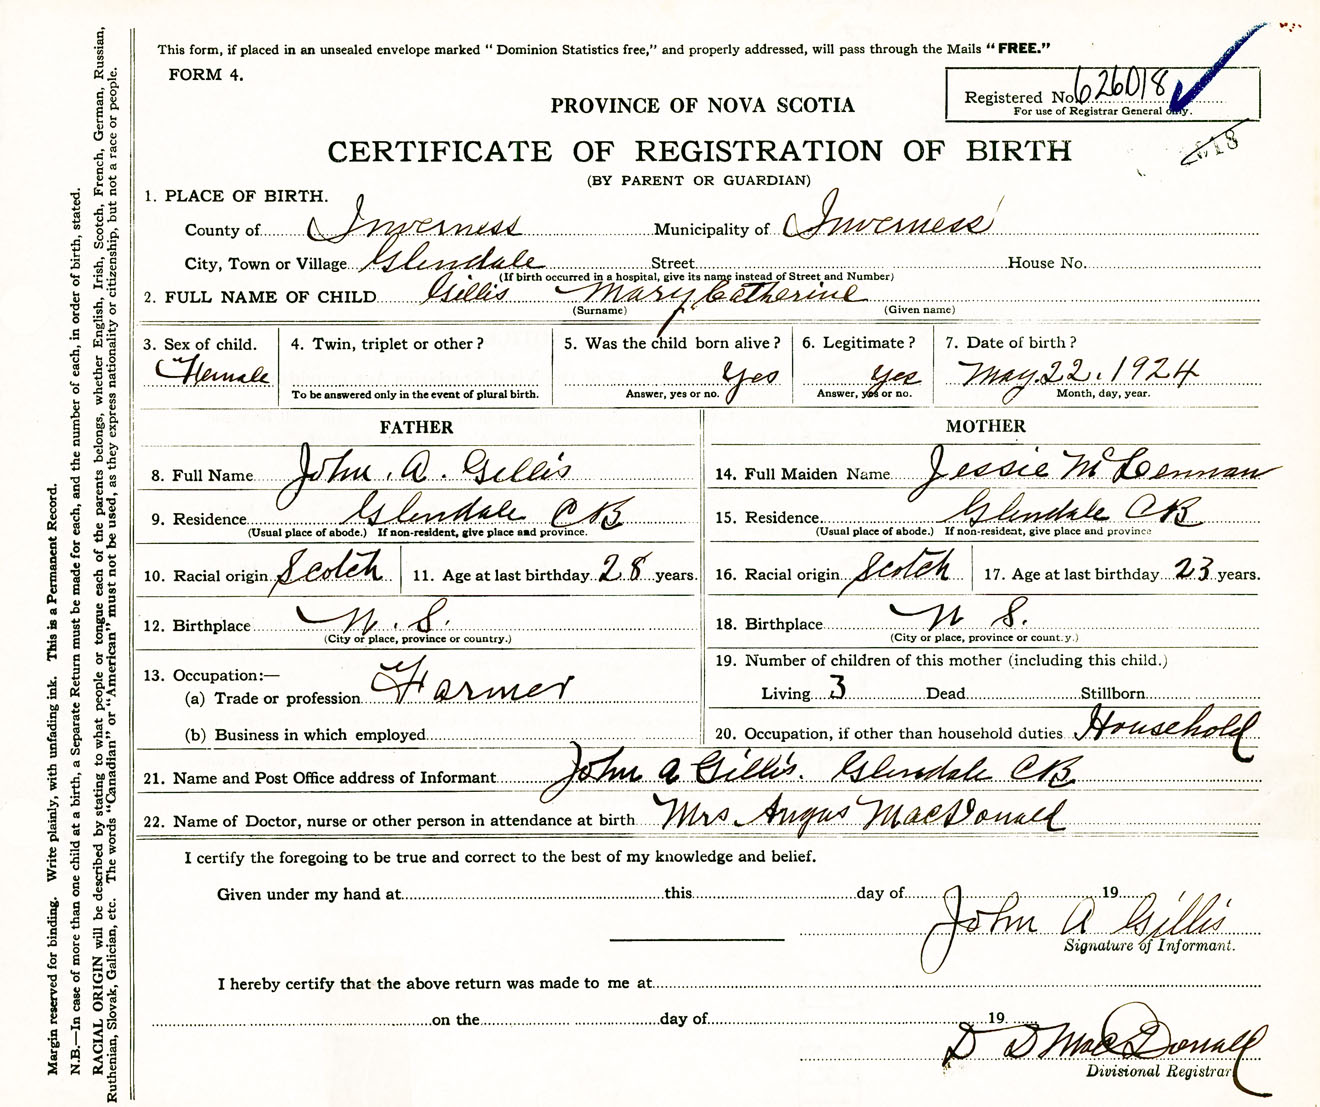 This form, if placed in an unsealed envelope marked "Dominion Statistics free," and properly addressed, will pass through the Mails "FREE."
FORM 4.
Registered No. 626018
For use of Registrar General only.
PROVINCE OF NOVA SCOTIA
CERTIFICATE OF REGISTRATION OF BIRTH
(BY PARENT OR GUARDIAN)
1. PLACE OF BIRTH.
County of Inverness Municipality of Inverness
City, Town or Village Glendale Street House No.
(If birth occurred in a hospital, give its name instead of Street and Number)
2. FULL NAME OF CHILD Gillis Mary Catherine
(Surname) (Given name)
3. Sex of child. 4. Twin, triplet or other? 5. Was the child born alive? 6. Legitimate? 7. Date of birth?
Female Yes Yes May 22. 1924
To be answered only in the event of plural birth. Answer, yes or no. Answer, yes or no. Month, day, year.
FATHER
8. Full Name John. A. Gillis
9. Residence Glendale CB
(Usual place of abode.) If non-resident, give place and province.
10. Racial origin Scotch 11. Age at last birthday 28 years.
12. Birthplace N. S.
(City or place, province or country.)
13. Occupation:—
(a) Trade or profession Farmer
(b) Business in which employed
MOTHER
14. Full Maiden Name Jessie McLennan
15. Residence Glendale CB
(Usual place of abode.) If non-resident, give place and province
16. Racial origin Scotch 17. Age at last birthday 23 years.
18. Birthplace N S.
(City or place, province or country.)
19. Number of children of this mother (including this child.)
Living 3 Dead Stillborn
20. Occupation, if other than household duties Household
21. Name and Post Office address of Informant John A Gillis. Glendale CB
22. Name of Doctor, nurse or other person in attendance at birth Mrs. Angus MacDonald
I certify the foregoing to be true and correct to the best of my knowledge and belief.
Given under my hand at this day of 19
John A Gillis
Signature of Informant.
I hereby certify that the above return was made to me at
on the day of 19
D D MacDonald
Divisional Registrar
Margin reserved for binding. Write plainly, with unfading ink. This is a Permanent Record.
N.B.—In case of more than one child at a birth, a Separate Return must be made for each, and the number of each, in order of birth, stated.
RACIAL ORIGIN will be described by stating to what people or tongue each of the parents belongs, whether English, Irish, Scotch, French, German, Russian,
Ruthenian, Slovak, Galician, etc. The words "Canadian" or "American" must not be used, as they express nationality or citizenship, but not a race or people.